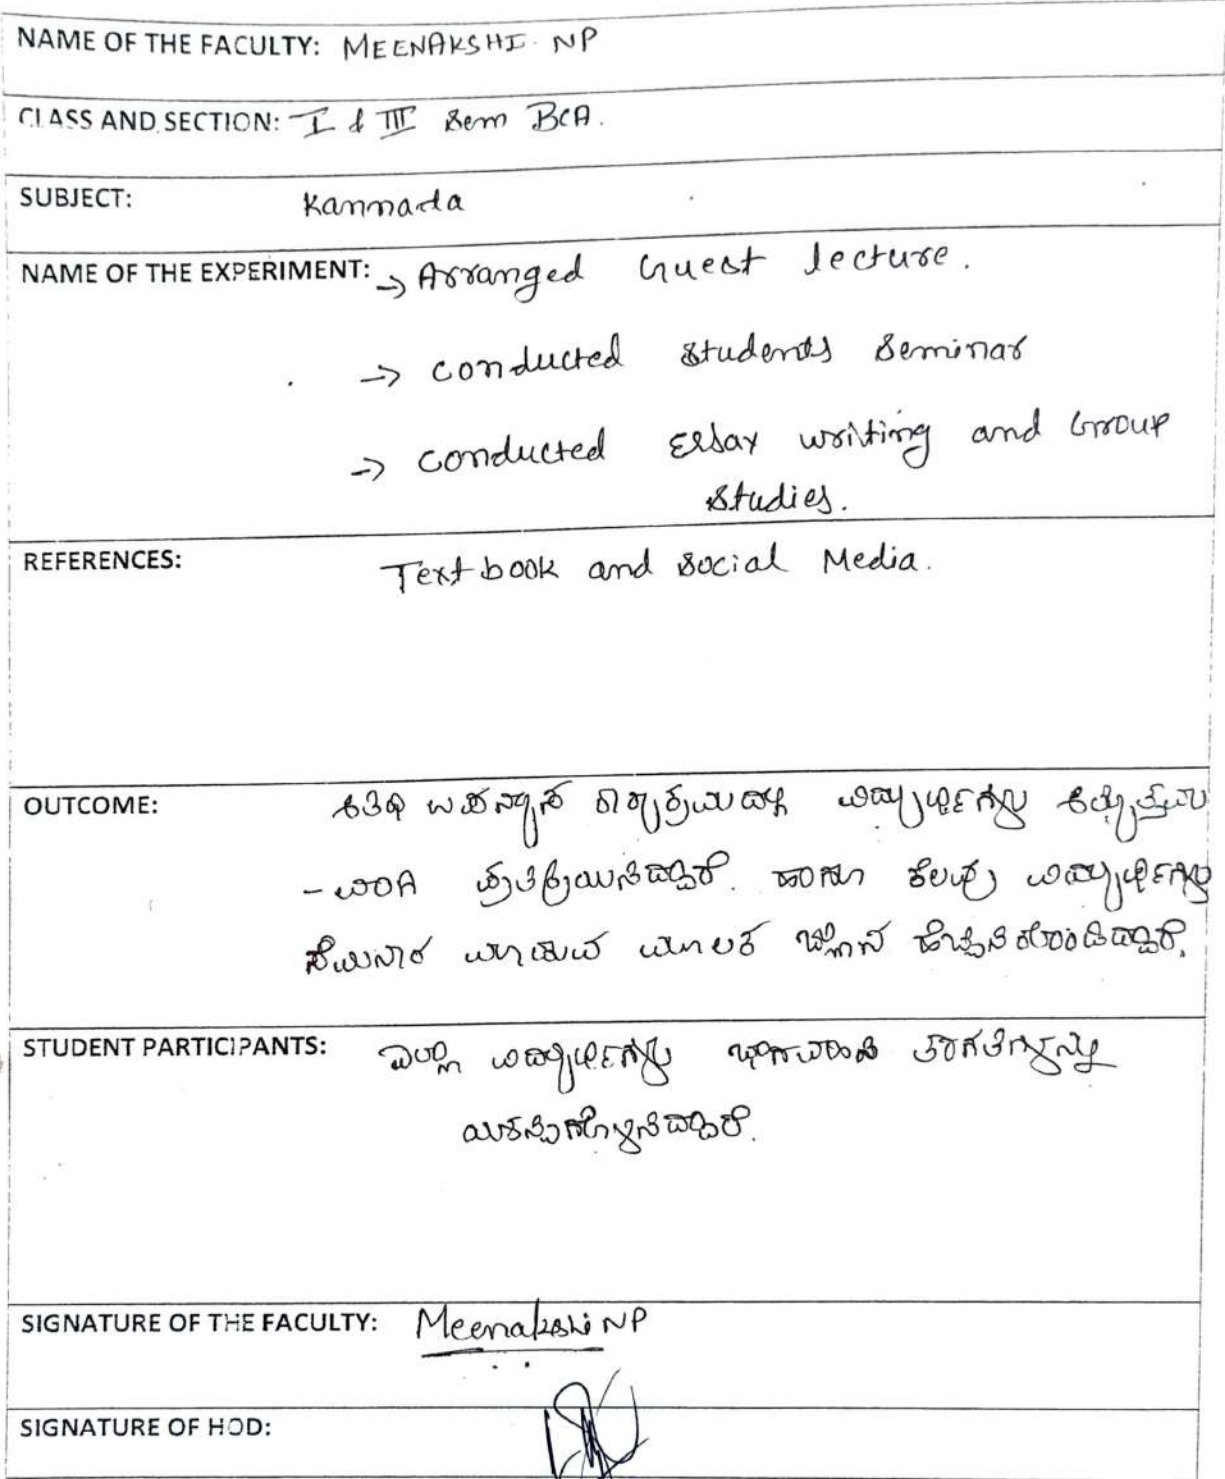 NAME OF THE FACULTY: MEENAKSHI NP
CLASS AND SECTION: I & III Sem BCA.
SUBJECT: Kannada
NAME OF THE EXPERIMENT: → Arranged Guest lecture.
→ conducted students seminar
→ conducted Essay writing and Group
studies.
REFERENCES: Text book and social Media.
OUTCOME: ಅತಿಥಿ ಉಪನ್ಯಾಸ ಕಾರ್ಯಕ್ರಮದಲ್ಲಿ ವಿದ್ಯಾರ್ಥಿಗಳು ಅತ್ಯುತ್ತಮ
-ವಾಗಿ ಪ್ರತಿಕ್ರಿಯಿಸಿದ್ದಾರೆ. ಹಾಗೂ ಕೆಲವು ವಿದ್ಯಾರ್ಥಿಗಳು
ಸೆಮಿನಾರ ಮಾಡುವ ಮೂಲಕ ಜ್ಞಾನ ಹೆಚ್ಚಿಸಿಕೊಂಡಿದ್ದಾರೆ.
STUDENT PARTICIPANTS: ಎಲ್ಲಾ ವಿದ್ಯಾರ್ಥಿಗಳು ಭಾಗವಹಿಸಿ ತರಗತಿಗಳನ್ನು
ಯಶಸ್ವಿಗೊಳಿಸಿದ್ದಾರೆ.
SIGNATURE OF THE FACULTY: Meenakshi NP
SIGNATURE OF HOD: